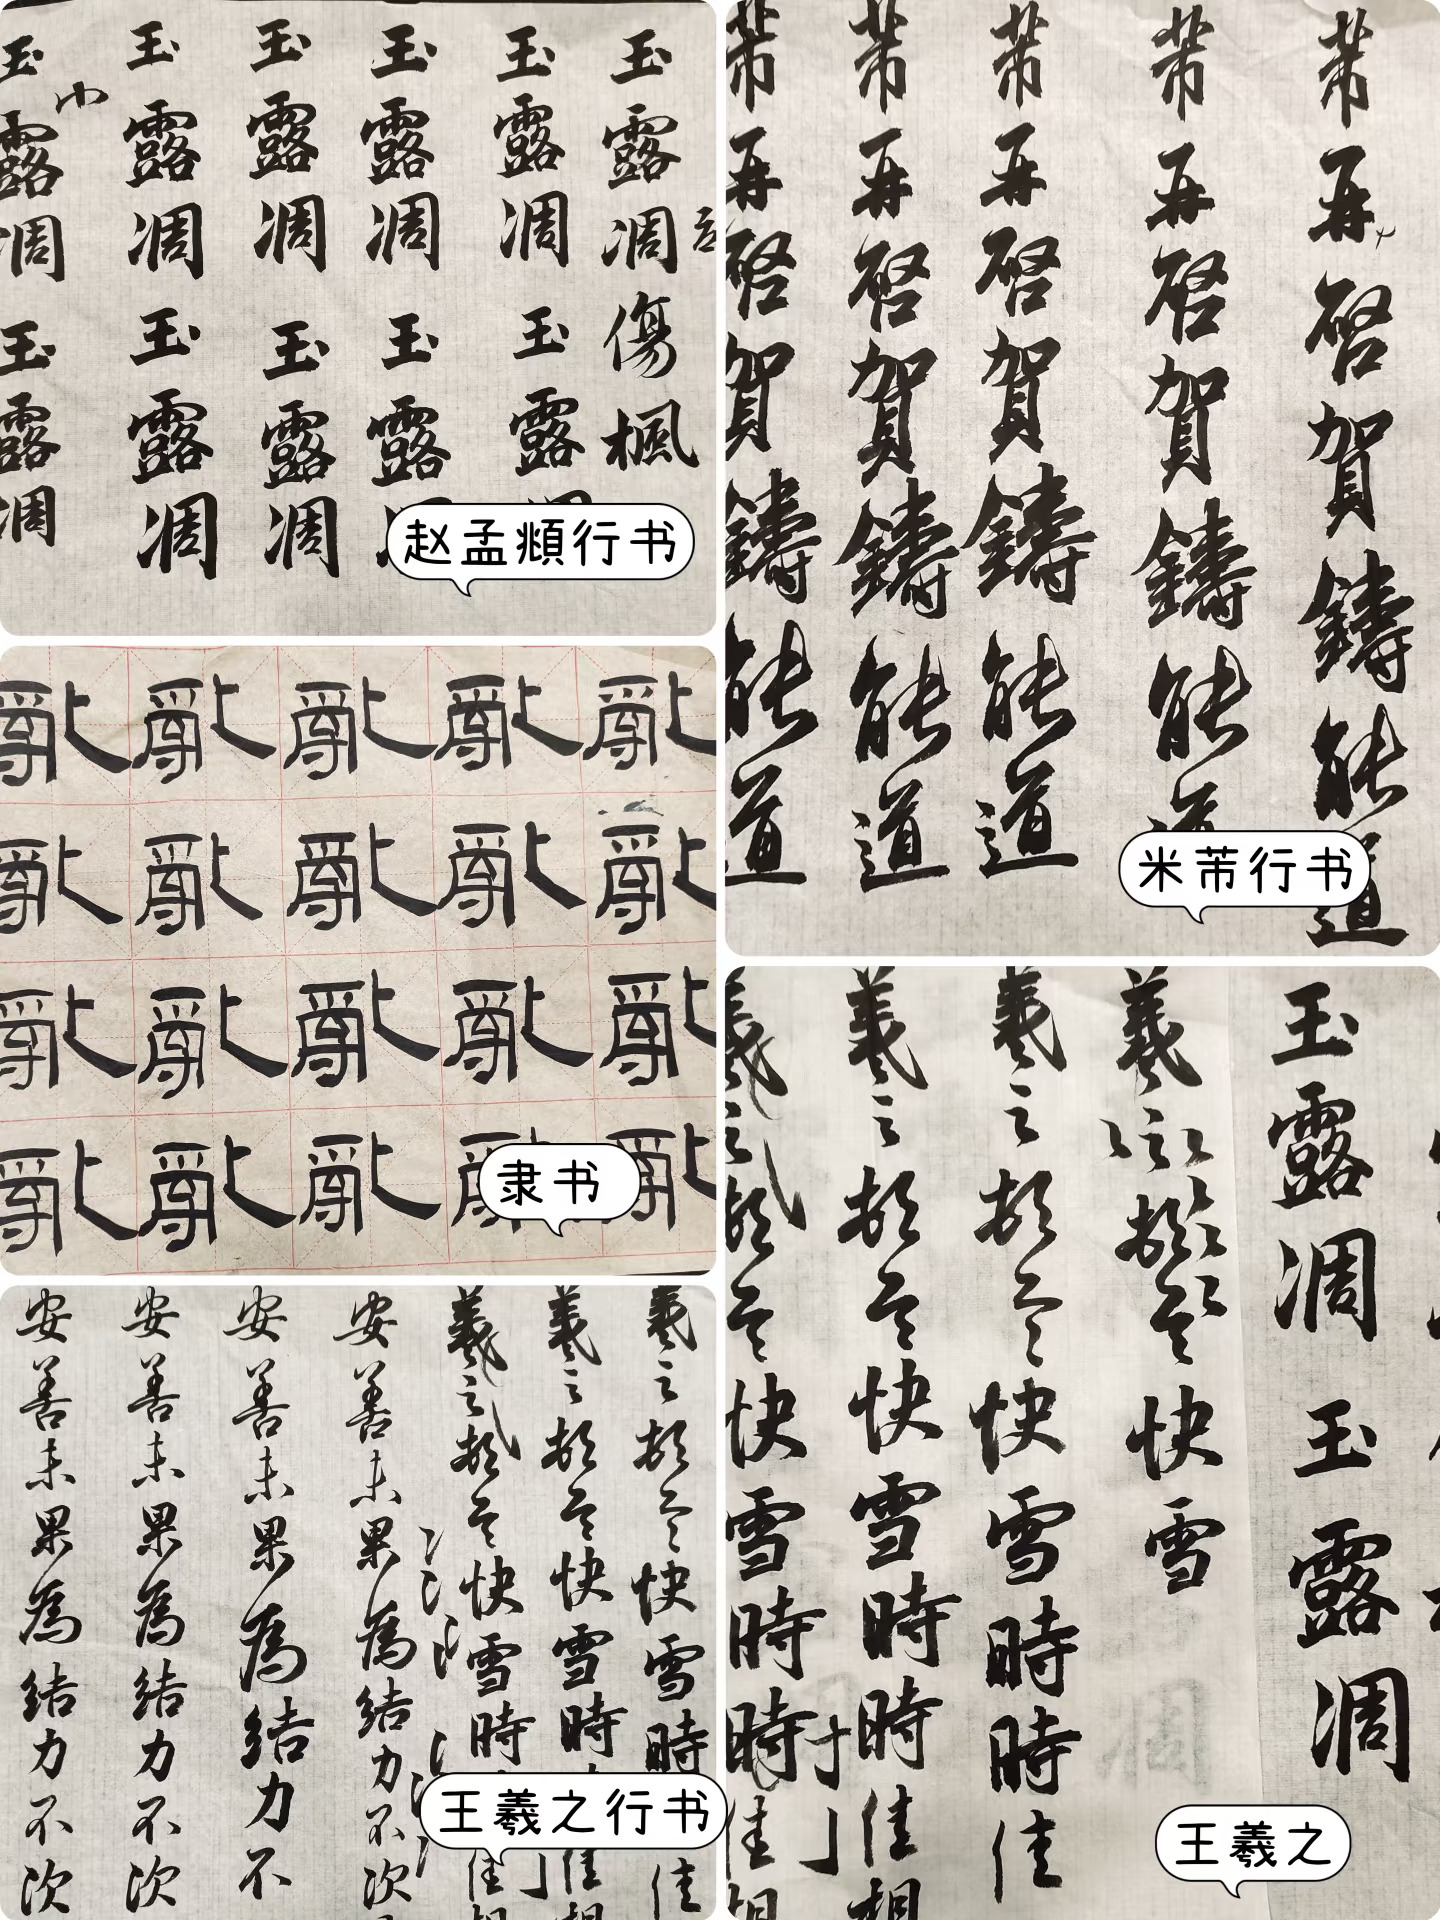 玉露凋傷楓
玉露凋玉露
玉露凋玉露
玉露凋玉露凋
玉露凋玉露凋
小
玉露凋玉露凋
赵孟頫行书
芾再啓賀鑄能道
芾再啓賀鑄能道
芾再啓賀鑄能道
芾再啓賀鑄能道
芾再啓賀鑄能道
米芾行书
亂亂亂亂亂
亂亂亂亂亂
亂亂亂亂亂
亂亂亂亂亂
隶书
羲之頓首快雪時佳
羲之頓首快雪時佳想
羲之頓首快雪時佳想
安善未果為結力不次
安善未果為結力不
安善未果為結力不次
安善未果為結力不次
王羲之行书
玉露凋玉露凋
羲之頓首快雪
羲之頓首快雪時時佳
羲之頓首快雪時時佳想
羲之頓首快雪時時佳想
王羲之